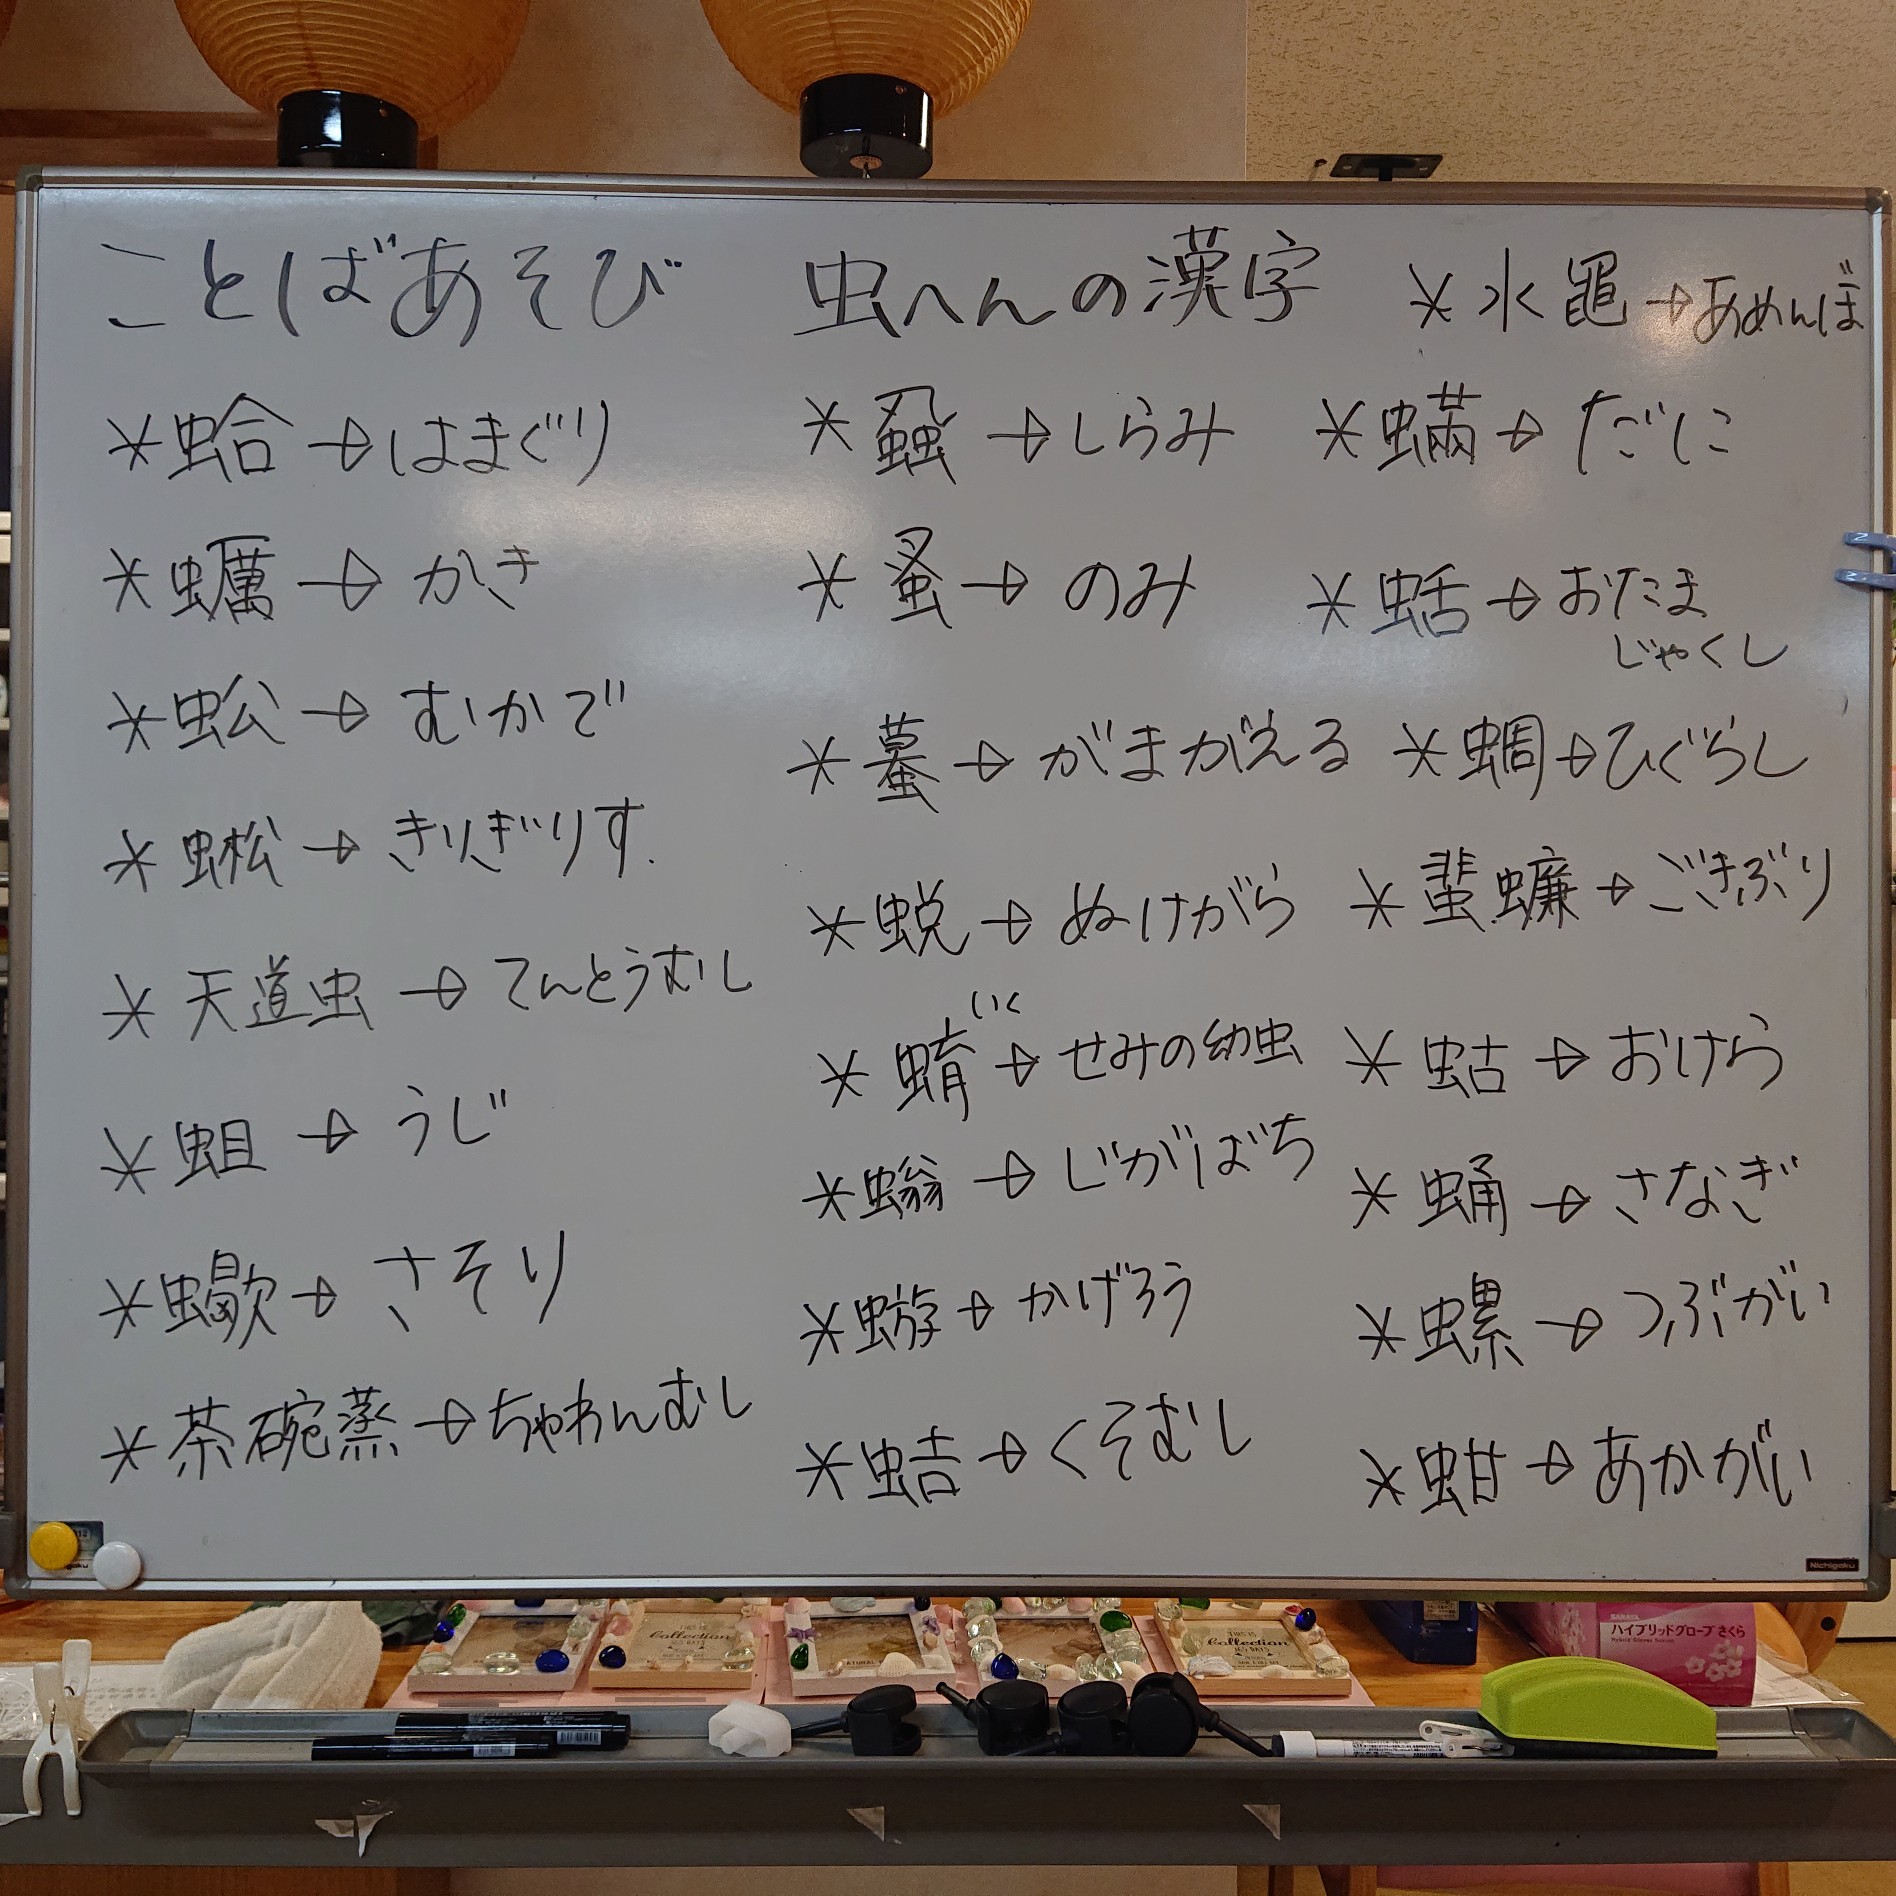 ことばあそび 虫へんの漢字
＊水黽→あめんぼ
＊蛤→はまぐり
＊蠣→かき
＊蚣→むかで
＊蜙→きりぎりす
＊天道虫→てんとうむし
＊蛆→うじ
＊蠍→さそり
＊茶碗蒸→ちゃわんむし
＊蝨→しらみ
＊蚤→のみ
＊蟇→がまがえる
＊蛻→ぬけがら
いく
＊蜟→せみの幼虫
＊螉→じがばち
＊蝣→かげろう
＊蛣→くそむし
＊蟎→だに
＊蛞→おたま
じゃくし
＊蜩→ひぐらし
＊蜚蠊→ごきぶり
＊蛄→おけら
＊蛹→さなぎ
＊螺→つぶがい
＊蚶→あかがい
Nichigaku
THIS IS
Collection
365 DAYS
THIS IS
Collection
365 DAYS
SARAYA
ハイブリッドグローブさくら